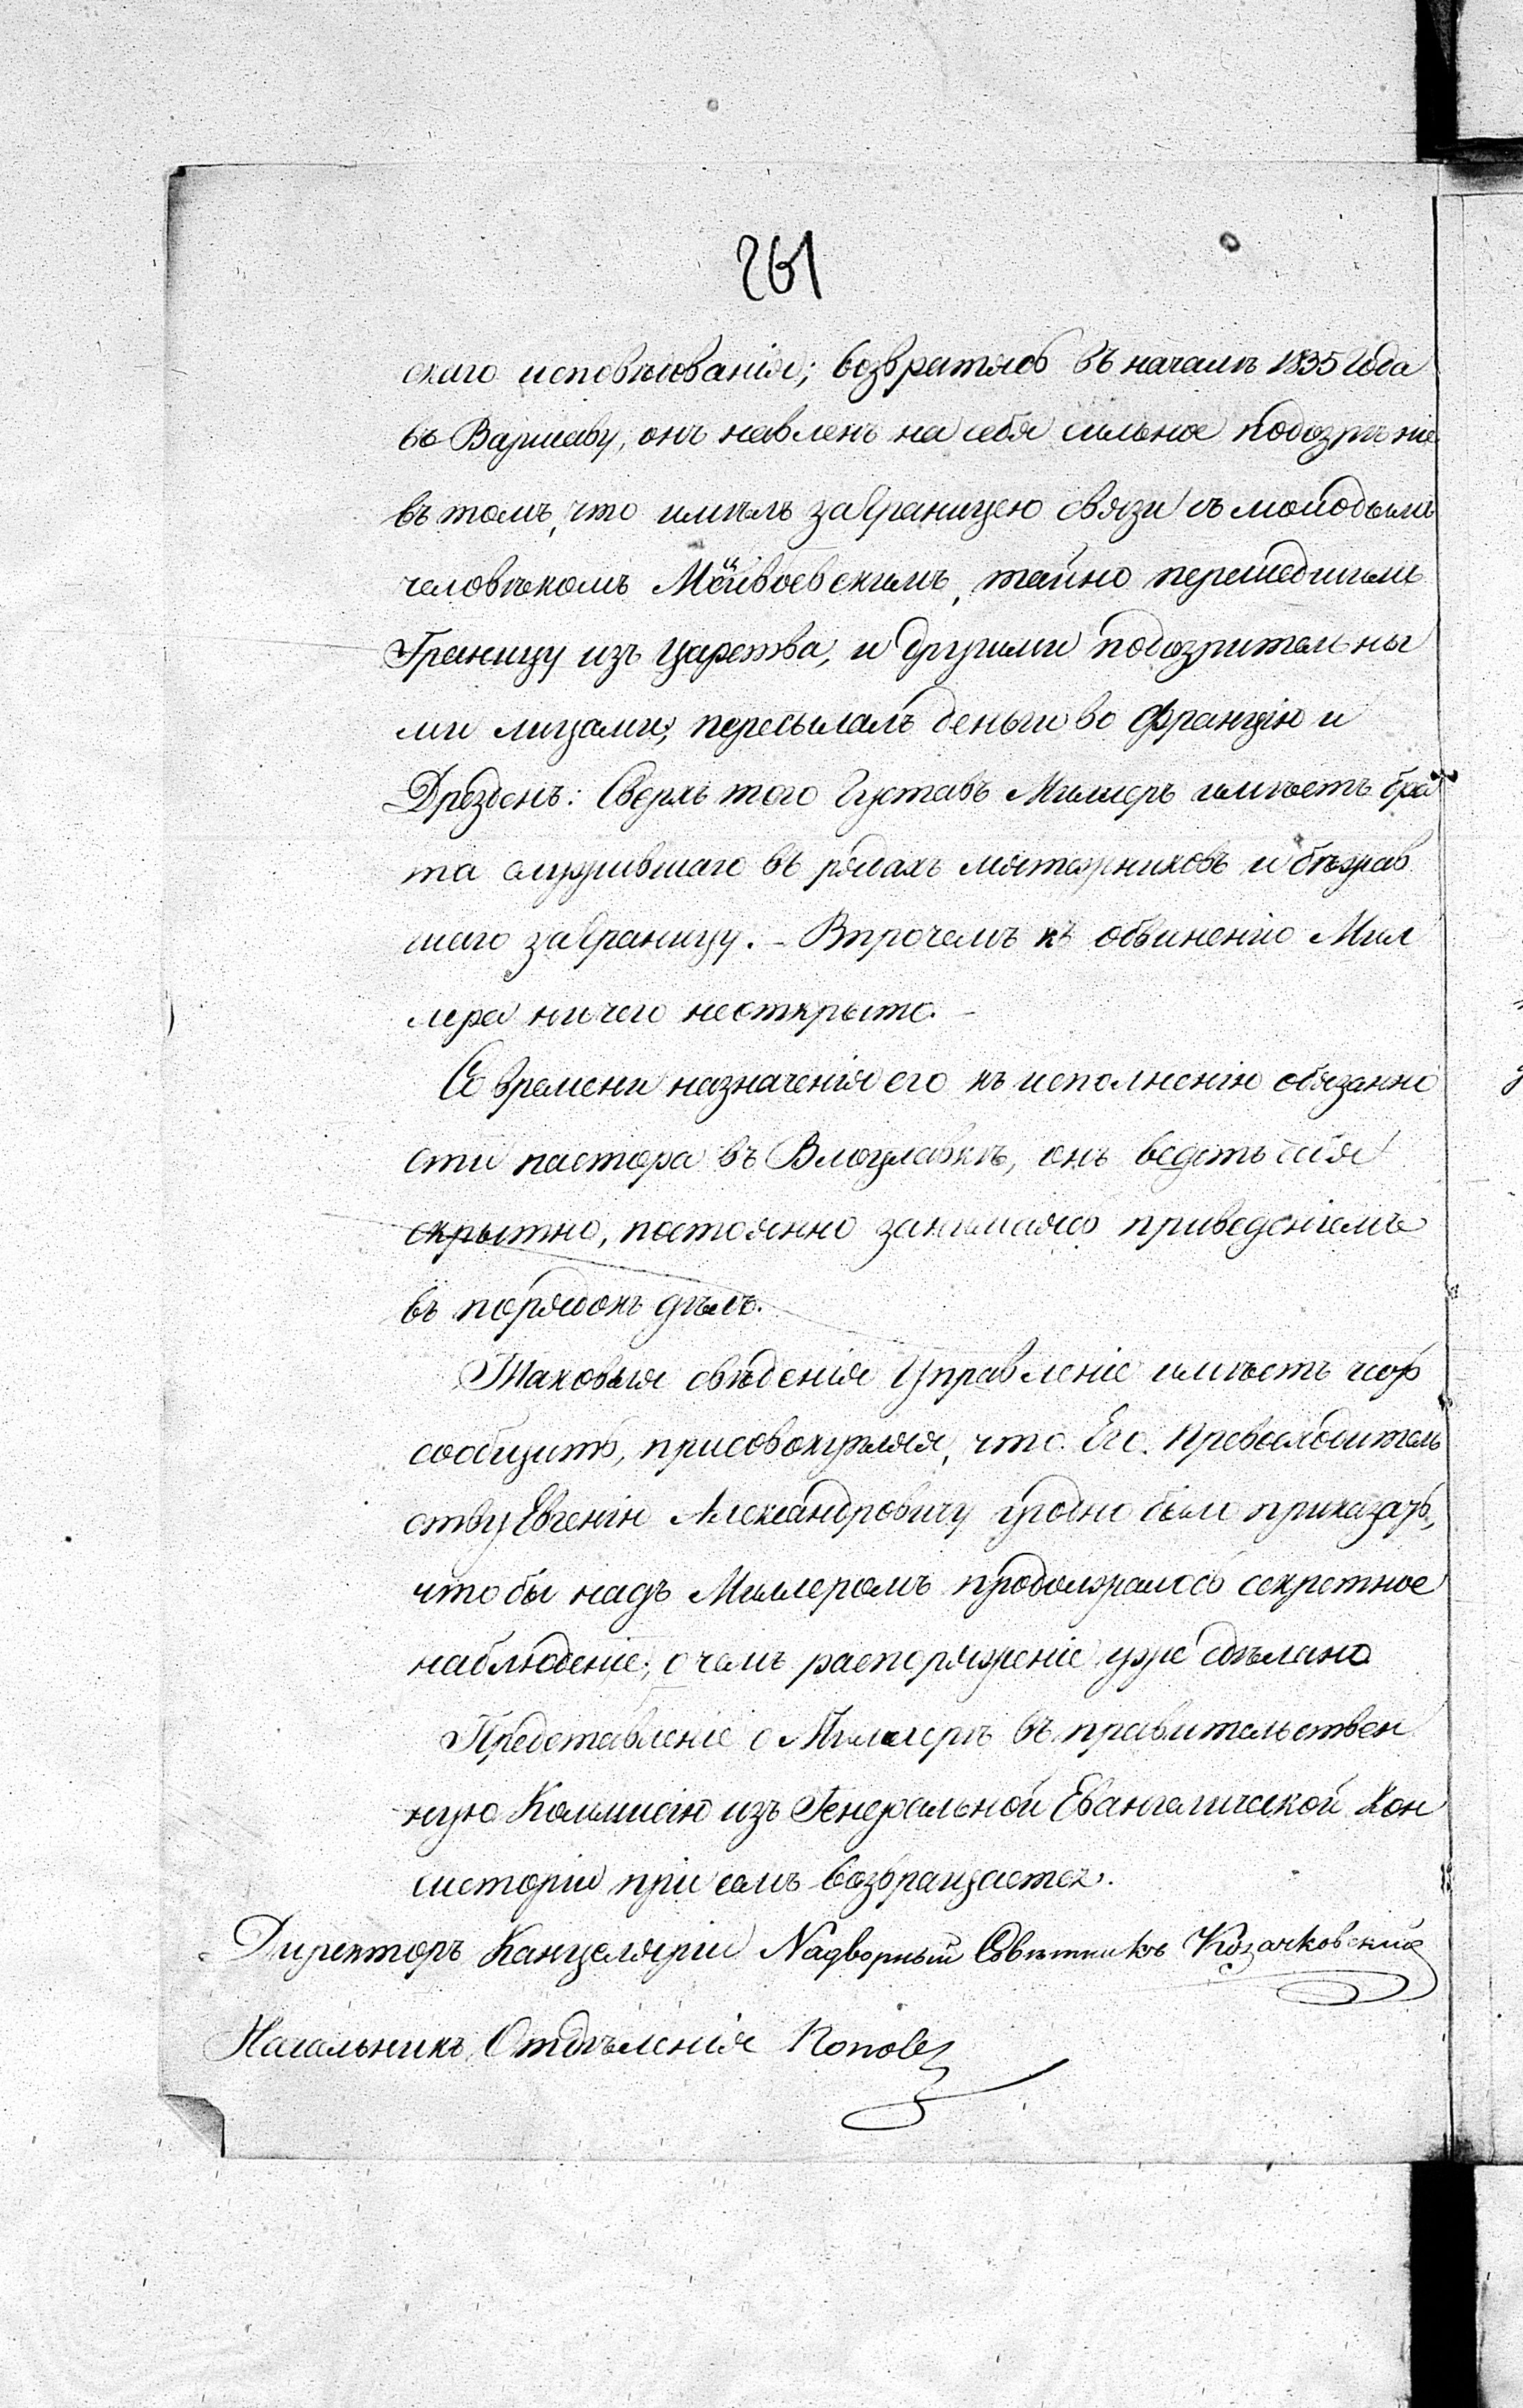 261
скаго исповѣдованія; возвратясь въ началѣ 1835 года
въ Варшаву, онъ навлекъ на себя сильное подозрѣніе
въ томъ, что имѣлъ заграницею связи съ молодымъ
человѣкомъ тайно перешедшимъ
Границу изъ Царства, и другими подозрительны
ми лицами, пересылалъ деньги во Францію и
Дрезденъ: Сверхъ того Густавъ Миллеръ имѣетъ бра
та служившаго въ рядахъ мятежниковъ и бѣжав
шаго заграницу. - Впрочемъ къ обвиненію Мил
лера ничего неоткрыто. -
Со времени назначенія его къ исполненію обязанно
сти пастора въ Влоцлавкѣ, онъ ведетъ себя
скрытно, постоянно занимаясь приведеніемъ
въ порядокъ дѣлъ.
Таковыя свѣденія Управленіе имѣетъ честь
сообщить, присовокупляя, что Его Превосходитель
ству Евгенію Александровичу угодно было приказать,
что бы надъ Миллеромъ продолжалось секретное
наблюденіе; о чемъ распоряженіе уже сдѣлано
Представленіе о Миллерѣ въ правительствен
ную Коммисію изъ Генеральной Евангелической Кон
систоріи при семъ возвращается.
Директоръ Канцеляріи Надворный Совѣтникъ Козачковскій
Начальникъ Отдѣленія Поповъ